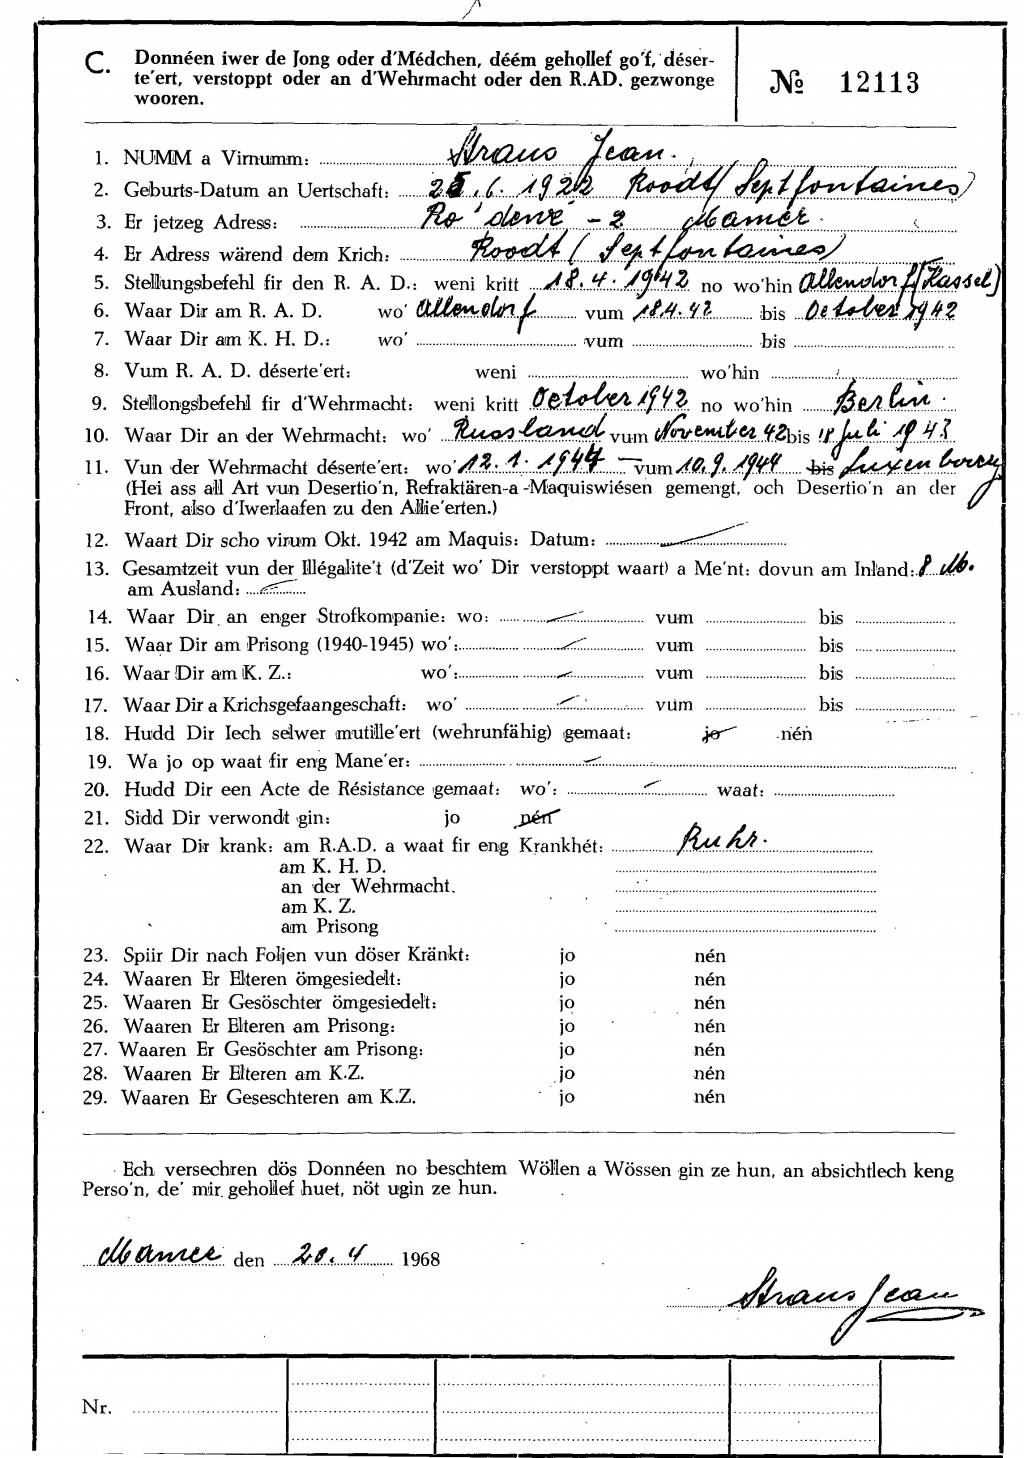 C. Donnéen iwer de Jong oder d'Médchen, déém gehollef go'f, déser-
te'ert, verstoppt oder an d'Wehrmacht oder den R.AD. gezwonge
wooren.
№ 12113
1. NUMM a Virnumm: Straus Jean.
2. Geburts-Datum an Uertschaft: 25.6.1922 Roodt/Septfontaines)
3. Er jetzeg Adress: Ro'dewé - 2 Mamer
4. Er Adress wärend dem Krich: Roodt (Septfontaines)
5. Stellungsbefehl fir den R. A. D.: weni kritt 18.4.1942 no wo'hin Allendorf (Kassel)
6. Waar Dir am R. A. D. wo' Allendorf vum 18.4.42 bis October 1942
7. Waar Dir am K. H. D.: wo' vum bis
8. Vum R. A. D. déserte'ert: weni wo'hin
9. Stellongsbefehl fir d'Wehrmacht: weni kritt October 1942 no wo'hin Berlin.
10. Waar Dir an der Wehrmacht: wo' Russland vum November 42 bis 18 Juli 1943
11. Vun der Wehrmacht déserte'ert: wo' 12.1.1944 — vum 10.9.1944 bis Luxenbourg
(Hei ass all Art vun Desertio'n, Refraktären-a-Maquiswiésen gemengt, och Desertio'n an der
Front, also d'Iwerlaafen zu den Allie'erten.)
12. Waart Dir scho virum Okt. 1942 am Maquis: Datum:
13. Gesamtzeit vun der Illégalite't (d'Zeit wo' Dir verstoppt waart) a Me'nt: dovun am Inland: 8 M.
am Ausland:
14. Waar Dir an enger Strofkompanie: wo: vum bis
15. Waar Dir am Prisong (1940-1945) wo': vum bis
16. Waar Dir am K. Z.: wo': vum bis
17. Waar Dir a Krichsgefaangeschaft: wo' vum bis
18. Hudd Dir Iech selwer mutille'ert (wehrunfähig) gemaat: jo nén
19. Wa jo op waat fir eng Mane'er:
20. Hudd Dir een Acte de Résistance gemaat: wo': waat:
21. Sidd Dir verwondt gin: jo nén
22. Waar Dir krank: am R.A.D. a waat fir eng Krankhét: Ruhr.
am K. H. D.
an der Wehrmacht.
am K. Z.
am Prisong
23. Spiir Dir nach Foljen vun döser Kränkt: jo nén
24. Waaren Er Elteren ömgesiedelt: jo nén
25. Waaren Er Gesöschter ömgesiedelt: jo nén
26. Waaren Er Elteren am Prisong: jo nén
27. Waaren Er Gesöschter am Prisong: jo nén
28. Waaren Er Elteren am K.Z. jo nén
29. Waaren Er Geseschteren am K.Z. jo nén
Ech versechren dös Donnéen no beschtem Wöllen a Wössen gin ze hun, an absichtlech keng
Perso'n, de' mir gehollef huet, nöt ugin ze hun.
Mamer den 20.4 1968
Straus Jean
Nr.